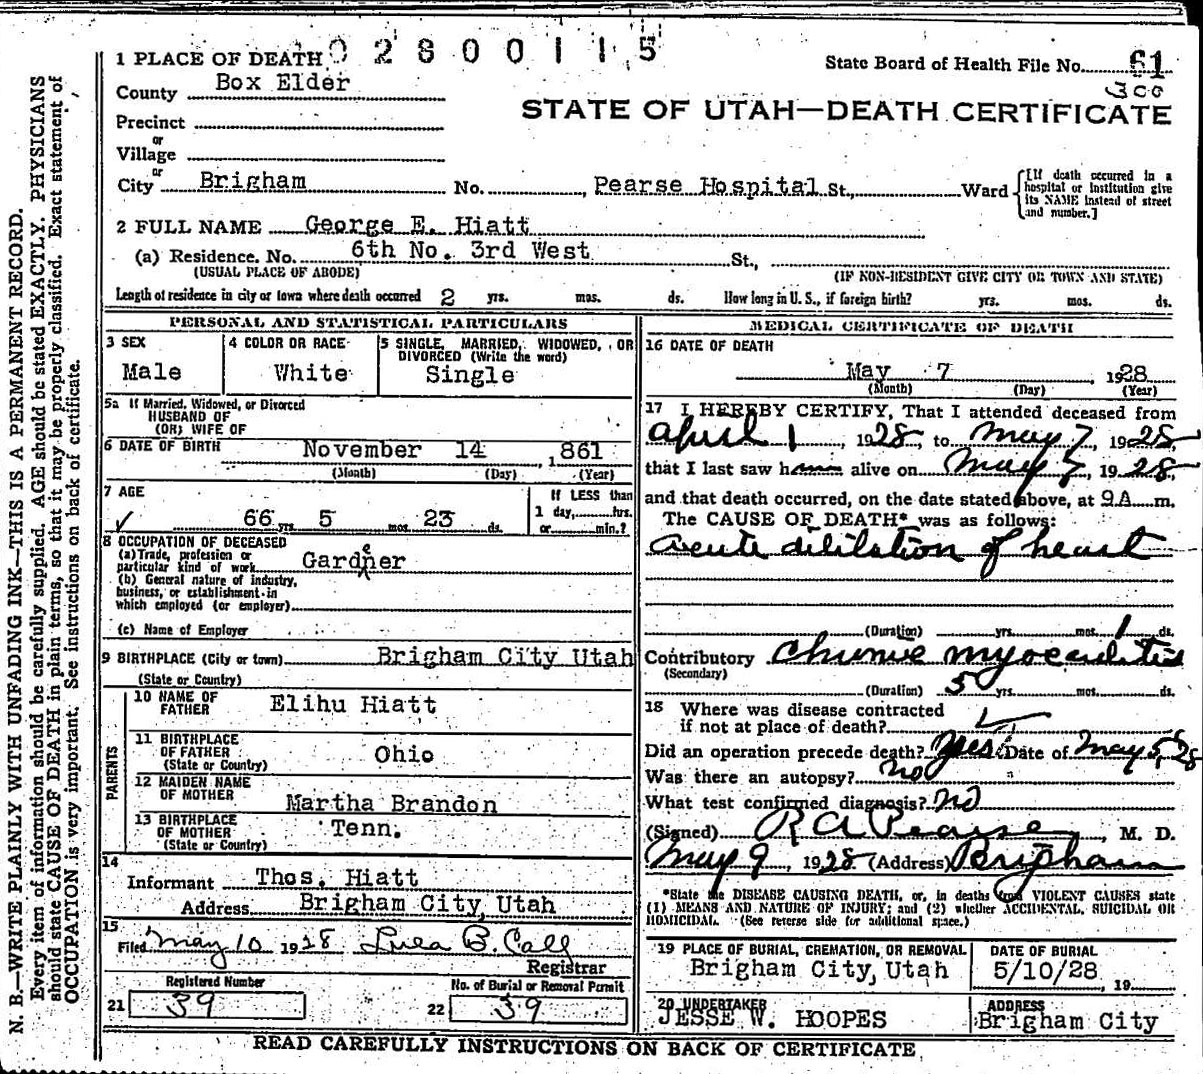 02800115
1 PLACE OF DEATH
State Board of Health File No. 61
300
County Box Elder
STATE OF UTAH—DEATH CERTIFICATE
Precinct
or
Village
or
City Brigham No. , Pearse Hospital St., Ward
[If death occurred in a hospital or institution give its NAME instead of street and number.]
2 FULL NAME George E. Hiatt
(a) Residence. No. 6th No. 3rd West St.,
(USUAL PLACE OF ABODE) (IF NON-RESIDENT GIVE CITY OR TOWN AND STATE)
Length of residence in city or town where death occurred 2 yrs. mos. ds. How long in U. S., if foreign birth? yrs. mos. ds.
PERSONAL AND STATISTICAL PARTICULARS
3 SEX
Male
4 COLOR OR RACE
White
5 SINGLE, MARRIED, WIDOWED, OR
DIVORCED (Write the word)
Single
5a If Married, Widowed, or Divorced
HUSBAND OF
(OR) WIFE OF
6 DATE OF BIRTH November 14 , 1861
(Month) (Day) (Year)
7 AGE
66 yrs 5 mos. 23 ds.
If LESS than
1 day, hrs.
or min.?
8 OCCUPATION OF DECEASED
(a) Trade, profession or
particular kind of work Gardener
(b) General nature of industry,
business, or establishment in
which employed (or employer)
(c) Name of Employer
9 BIRTHPLACE (City or town) Brigham City Utah
(State or Country)
PARENTS
10 NAME OF
FATHER Elihu Hiatt
11 BIRTHPLACE
OF FATHER Ohio
(State or Country)
12 MAIDEN NAME
OF MOTHER Martha Brandon
13 BIRTHPLACE
OF MOTHER Tenn.
(State or Country)
14
Informant Thos. Hiatt
Address Brigham City, Utah
15
Filed May 10 1928 Lula B. Call
Registrar
Registered Number
21 39
No. of Burial or Removal Permit
22 39
MEDICAL CERTIFICATE OF DEATH
16 DATE OF DEATH
May 7 , 1928
(Month) (Day) (Year)
17 I HEREBY CERTIFY, That I attended deceased from
April 1 , 1928, to May 7, 1928
that I last saw h alive on May 7, 1928,
and that death occurred, on the date stated above, at 9A m.
The CAUSE OF DEATH* was as follows:
Acute dilitation of heart
(Duration) yrs. mos. 1 ds.
Contributory Chronic myocarditis
(Secondary)
(Duration) 5 yrs. mos. ds.
18 Where was disease contracted
if not at place of death?
Did an operation precede death? Yes Date of May 5, 28
Was there an autopsy? no
What test confirmed diagnosis? no
(Signed) R A Pearse , M. D.
May 9 , 1928 (Address) Brigham
*State the DISEASE CAUSING DEATH, or, in deaths from VIOLENT CAUSES state
(1) MEANS AND NATURE OF INJURY; and (2) whether ACCIDENTAL, SUICIDAL OR
HOMICIDAL. (See reverse side for additional space.)
19 PLACE OF BURIAL, CREMATION, OR REMOVAL
Brigham City, Utah
DATE OF BURIAL
5/10/28 , 19
20 UNDERTAKER
JESSE W. HOOPES
ADDRESS
Brigham City
READ CAREFULLY INSTRUCTIONS ON BACK OF CERTIFICATE
N. B.—WRITE PLAINLY WITH UNFADING INK—THIS IS A PERMANENT RECORD.
Every item of information should be carefully supplied. AGE should be stated EXACTLY. PHYSICIANS
should state CAUSE OF DEATH in plain terms, so that it may be properly classified. Exact statement of
OCCUPATION is very important. See instructions on back of certificate.